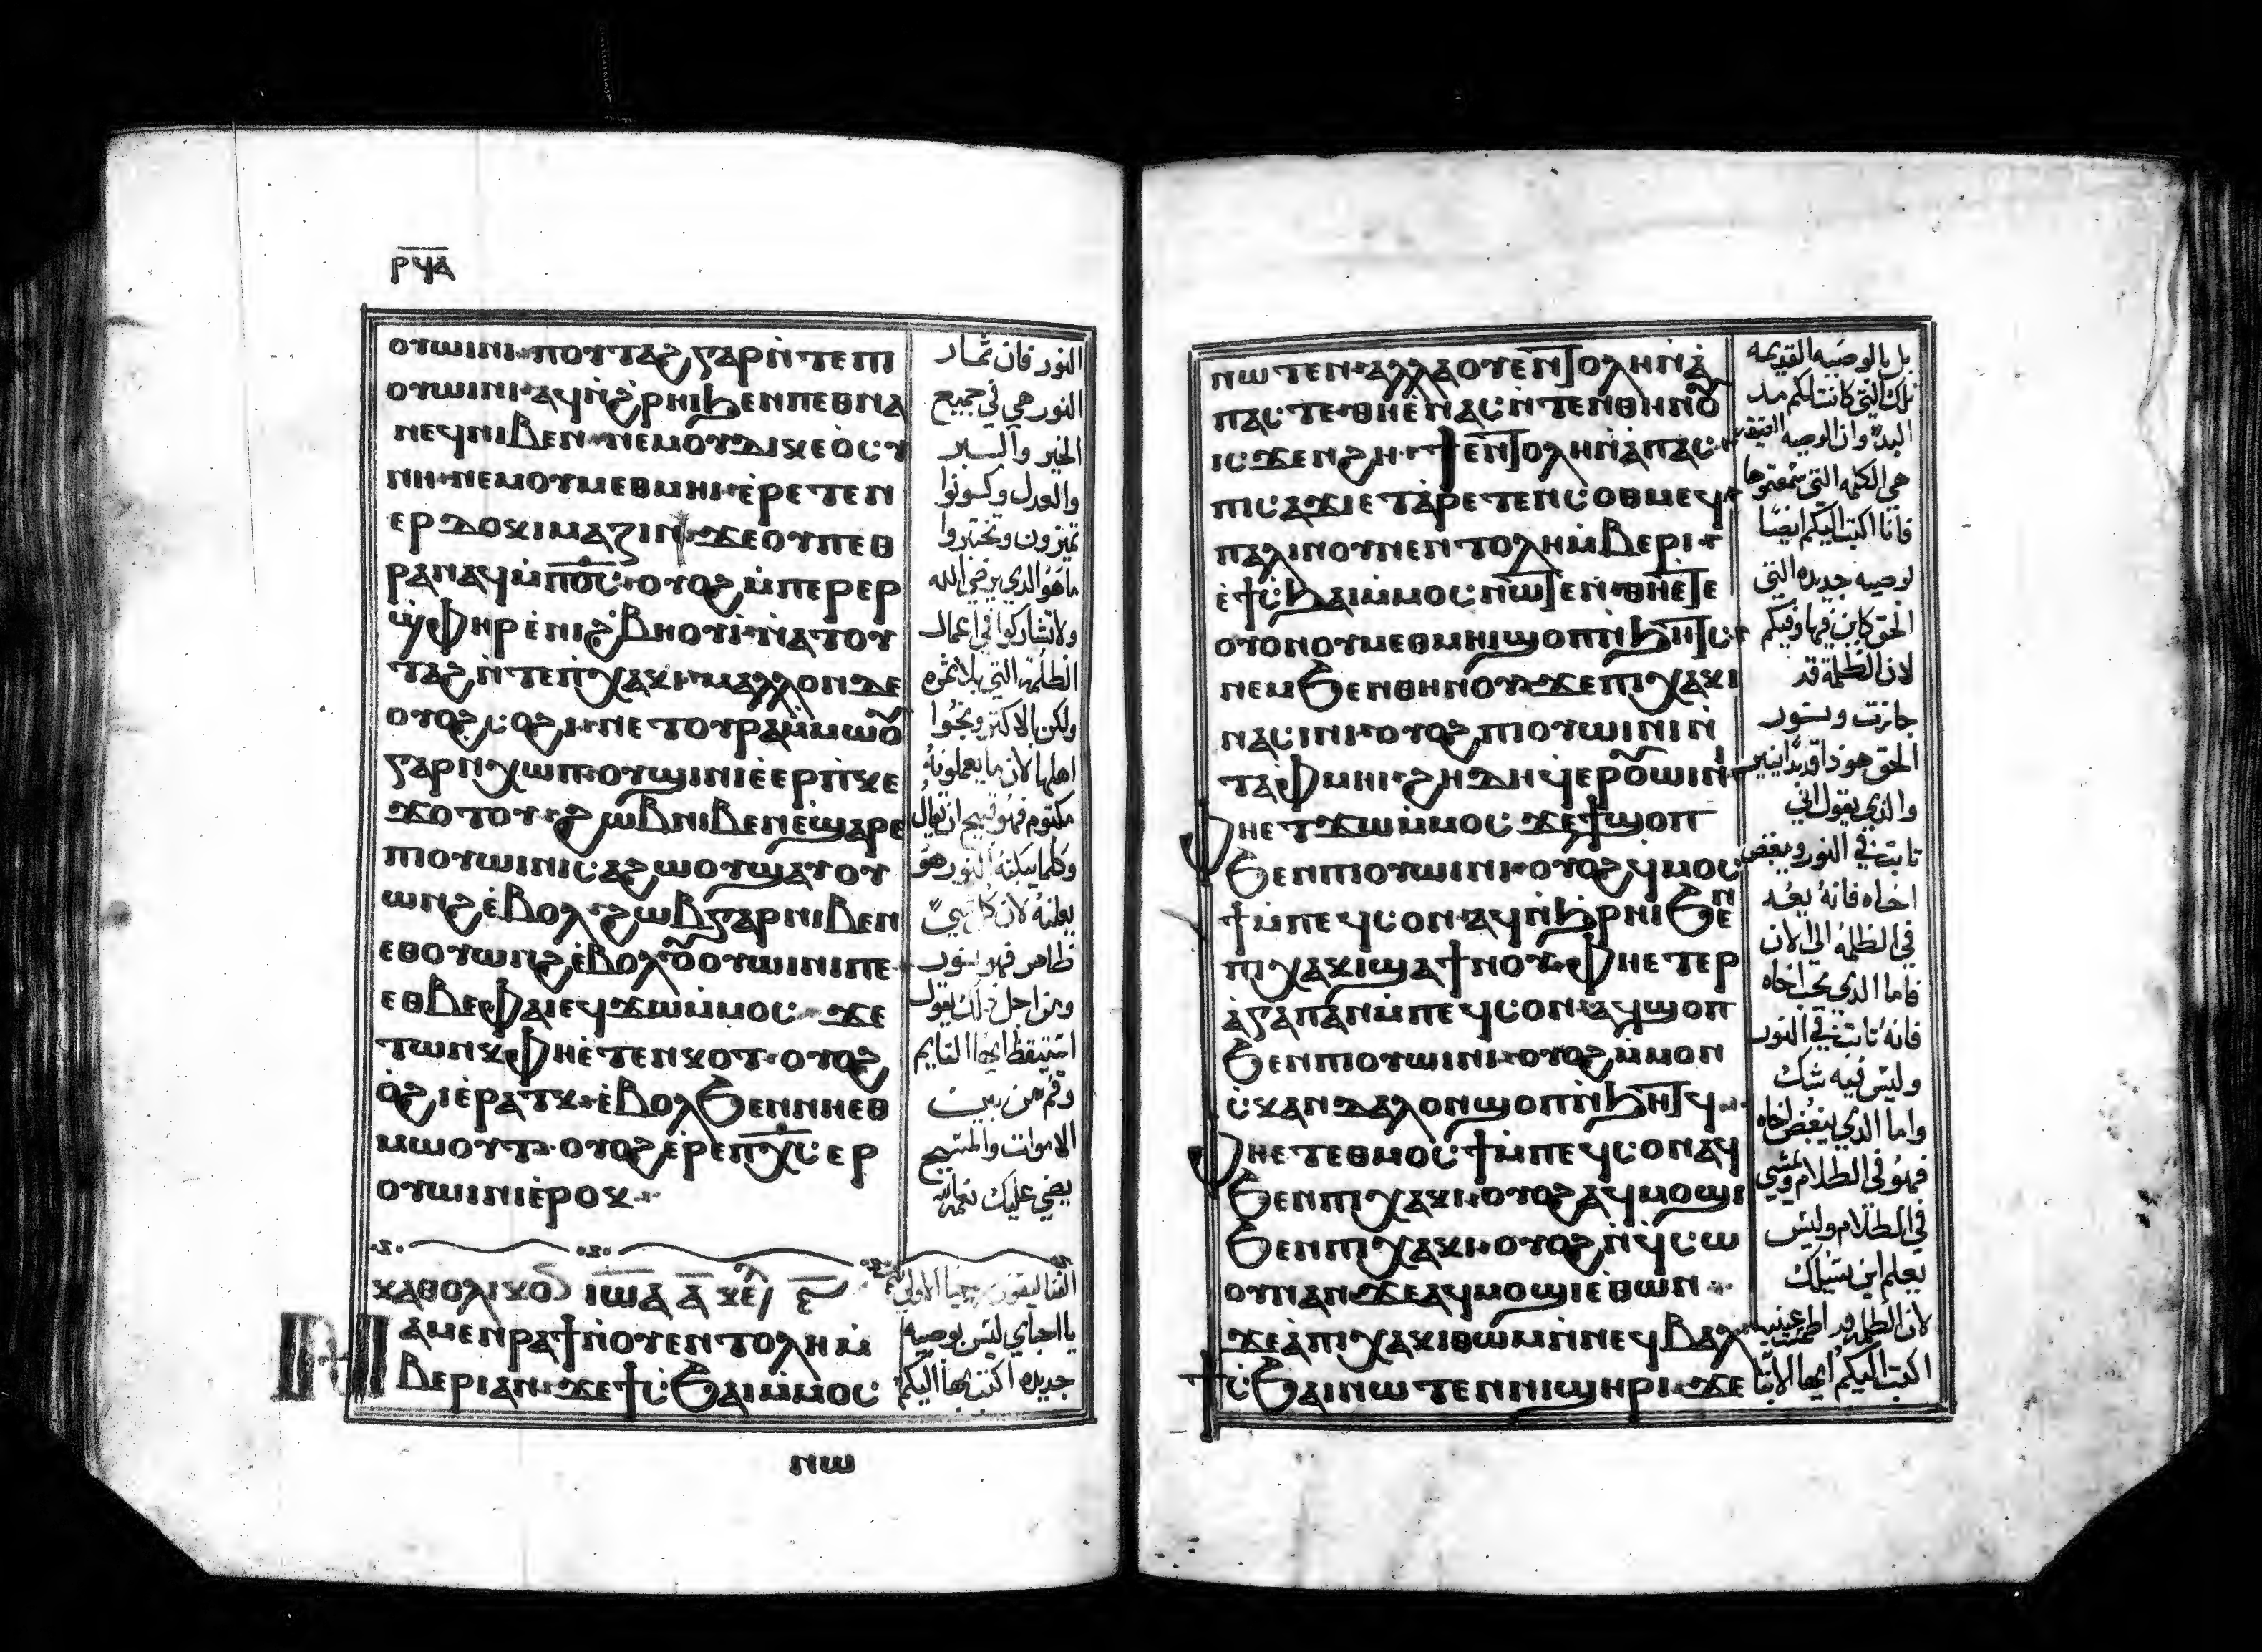 ⲣϥⲁ
ⲟⲩⲱⲓⲛⲓ· ⲡⲟⲩⲧⲁϩ ⲅⲁⲣ ⲛ̀ⲧⲉ ⲡⲓ
ⲟⲩⲱⲓⲛⲓ· ⲁϥⲛ̀ϩⲣⲏⲓ ϧⲉⲛ ⲡⲉⲑⲛⲁ
ⲛⲉϥ ⲛⲓⲃⲉⲛ· ⲛⲉⲙ ⲟⲩⲇⲓⲕⲉⲟⲥⲩ
ⲛⲏ· ⲛⲉⲙ ⲟⲩⲙⲉⲑⲙⲏⲓ· ⲉ̀ⲣⲉⲧⲉⲛ
ⲉⲣⲇⲟⲕⲓⲙⲁⲍⲓⲛ· ϫⲉ ⲟⲩ ⲡⲉⲑ
ⲣⲁⲛⲁϥ ⲙ̀ⲡⲟ̅ⲥ̅· ⲟⲩⲟϩ ⲙ̀ⲡⲉⲣⲉⲣ
ϣ̀ⲫⲏⲣ ⲉ̀ⲛⲓϩ̀ⲃⲏⲟⲩⲓ· ⲛ̀ⲁⲧⲟⲩ
ⲧⲁϩ ⲛ̀ⲧⲉ ⲡ̀ⲭⲁⲕⲓ· ⲙⲁⲗⲗⲟⲛ ⲇⲉ
ⲟⲩⲟϩ ⲥⲟϩⲓ· ⲛⲉⲧⲟⲩⲣⲁ ⲙ̀ⲙⲱⲟ̅ⲩ
ⲅⲁⲣ ⲛ̀ⲭⲱⲡ· ⲟⲩϣⲓⲛⲓ ⲉ̀ⲉⲣⲡ̀ⲕⲉ
ϫⲟⲧⲟⲩ· ϩⲱⲃ ⲛⲓⲃⲉⲛ ⲉ̀ϣⲁⲣⲉ
ⲡⲓⲟⲩⲱⲓⲛⲓ ⲥⲁϩⲱⲟⲩ ϣⲁⲩⲟⲩ
ⲱⲛϩ ⲉ̀ⲃⲟⲗ· ϩⲱⲃ ⲅⲁⲣ ⲛⲓⲃⲉⲛ
ⲉⲑⲟⲩⲱⲛϩ ⲉ̀ⲃⲟⲗ ⲟ̅ⲩ ⲟⲩⲱⲓⲛⲓ ⲡⲉ·
ⲉⲑⲃⲉ ⲫⲁⲓ ⲉϥϫⲱ ⲙ̀ⲙⲟⲥ· ϫⲉ
ⲧⲱⲛⲕ ⲫⲏⲉ̀ⲧⲉⲛⲕⲟⲧ· ⲟⲩⲟϩ
ⲟ̀ϩⲓ ⲉ̀ⲣⲁⲧⲕ· ⲉ̀ⲃⲟⲗ ϧⲉⲛ ⲛⲏⲉⲑ
ⲙⲱⲟⲩⲧ· ⲟⲩⲟϩ ⲉ̀ⲣⲉ ⲡⲭ̅ⲥ̅ ⲉⲣ
ⲟⲩⲱⲓⲛⲓ ⲉ̀ⲣⲟⲕ·
ⲕⲁⲑⲟⲗⲓⲕⲟⲛ ⲓⲱ̅ⲁ ⲁ̅ ⲕⲉⲫ ⲉ̅
ⲛⲁⲙⲉⲛⲣⲁϯ ⲛ̀ⲟⲩⲉⲛⲧⲟⲗⲏ ⲙ̀
ⲃⲉⲣⲓ ⲁⲛ· ϫⲉ ϯⲥϧⲁⲓ ⲙ̀ⲙⲟⲥ
ⲛⲱ
النور فان ثمار
النور هي في جميع
الخير والبر
والعدل وكونوا
تميزون وتختبروا
ما هو الذي يرضي الله
ولا تشاركوا في اعمال
الظلمة التي بلا ثمره
ولكن بالاكثر وبخوا
اهلها لان ما يعملونه
مكتوم فهو قبيح ان يقال
وكلما يبكته النور هو
يعلنه لان كل شي
ظاهر فهو نور
ومن اجل ذلك يقول
استيقظ ايها النايم
وقم من بين
الاموات والمسيح
يضي عليك
يا احباي ليس بوصيه
جديده اكتب بها اليكم
ⲛⲱⲧⲉⲛ· ⲁⲗⲗⲁ ⲟⲩⲉⲛⲧⲟⲗⲏ ⲛ̀ⲁ̀
ⲡⲁⲥ ⲧⲉ· ⲑⲏⲉ̀ⲛⲁⲥⲛ̀ⲧⲉⲛ ⲑⲏⲛⲟ̅ⲩ
ⲓⲥϫⲉⲛ ϩⲏ· ϯⲉⲛⲧⲟⲗⲏ ⲛ̀ⲁ̀ⲡⲁⲥ·
ⲡⲓⲥⲁϫⲓ ⲉⲧⲁ̀ⲣⲉⲧⲉⲛⲥⲟⲑⲙⲉϥ·
ⲡⲁⲗⲓⲛ ⲟⲩⲛ ⲉⲛⲧⲟⲗⲏ ⲙ̀ⲃⲉⲣⲓ·
ⲉ̀ϯⲥ̀ϧⲁⲓ ⲙ̀ⲙⲟⲥ ⲛⲱⲧⲉⲛ· ⲑⲏⲉ̀ⲧⲉ
ⲟⲩⲟⲛ ⲟⲩⲙⲉⲑⲙⲏⲓ ϣⲟⲡ ⲛ̀ϧⲏⲧⲥ·
ⲛⲉⲙ ϧⲉⲛ ⲑⲏⲛⲟⲩ· ϫⲉ ⲡⲓⲭⲁⲕⲓ
ⲛⲁⲥⲓⲛⲓ· ⲟⲩⲟϩ ⲡⲓⲟⲩⲱⲓⲛⲓ ⲛ̀
ⲧⲁ̀ⲫⲙⲏⲓ· ϩⲏⲇⲏ ϥⲉⲣⲟ̅ⲩⲱⲓⲛⲓ·
ⲫⲏⲉⲧϫⲱ ⲙ̀ⲙⲟⲥ ϫⲉ ϯϣⲟⲡ
ϧⲉⲛ ⲡⲓⲟⲩⲱⲓⲛⲓ· ⲟⲩⲟϩ ϥⲙⲟⲥ
ϯ ⲙ̀ⲡⲉϥⲥⲟⲛ· ⲁϥⲛ̀ϧⲣⲏⲓ ϧⲉⲛ
ⲡⲓⲭⲁⲕⲓ ϣⲁ ϯⲛⲟⲩ· ⲫⲏⲉⲧⲉⲣ
ⲁ̀ⲅⲁⲡⲁⲛ ⲙ̀ⲡⲉϥⲥⲟⲛ· ⲁϥϣⲟⲡ
ϧⲉⲛ ⲡⲓⲟⲩⲱⲓⲛⲓ· ⲟⲩⲟϩ ⲙ̀ⲙⲟⲛ
ⲥ̀ⲕⲁⲛⲇⲁⲗⲟⲛ ϣⲟⲡ ⲛ̀ϧⲏⲧϥ·
ⲫⲏⲉⲧⲉⲑⲙⲟⲥϯ ⲙ̀ⲡⲉϥⲥⲟⲛ ⲁϥ
ϧⲉⲛ ⲡⲓⲭⲁⲕⲓ· ⲟⲩⲟϩ ⲁϥⲙⲟϣⲓ
ϧⲉⲛ ⲡⲓⲭⲁⲕⲓ· ⲟⲩⲟϩ ⲛ̀ϥⲥⲱ
ⲟⲩⲛ ⲁⲛ ϫⲉ ⲁϥⲙⲟϣⲓ ⲉ̀ⲑⲱⲛ·
ϫⲉ ⲁ̀ⲡⲓⲭⲁⲕⲓ ⲑⲱⲙ ⲛ̀ⲛⲉϥⲃⲁⲗ
ϯⲥϧⲁⲓ ⲛⲱⲧⲉⲛ ⲛⲓϣⲏⲣⲓ· ϫⲉ
بل بالوصيه القديمه
تلك التي كانت لكم مند
البدء وان الوصيه العتيقه
هي الكلمه التي سمعتموها
فانا اكتب اليكم ايضًا
لوصيه جديده التي
الحق كاين فيها وفيكم
لان الظلمة قد
جازت ونور
الحق هو ذا قد بدا ينير
والذي يقول اني
ثابت في النور ويبغض
اخاه فانه بعد
في الظلمه الي الان
فاما الذي يحب اخاه
فانه ثابت في النور
وليس فيه شك
واما الذي يبغض اخاه
فهو في الظلام ويمشي
في الظلام وليس
يعلم اين يسلك
لان الظلمه قد اطمست عينيه
اكتب اليكم ايها الابنا